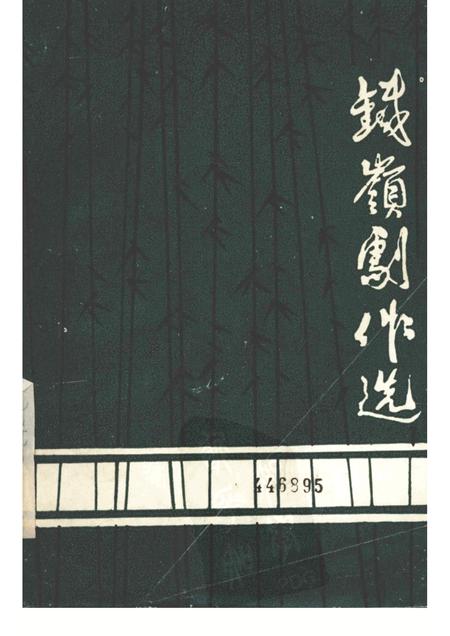 鐵嶺劇作选
446895